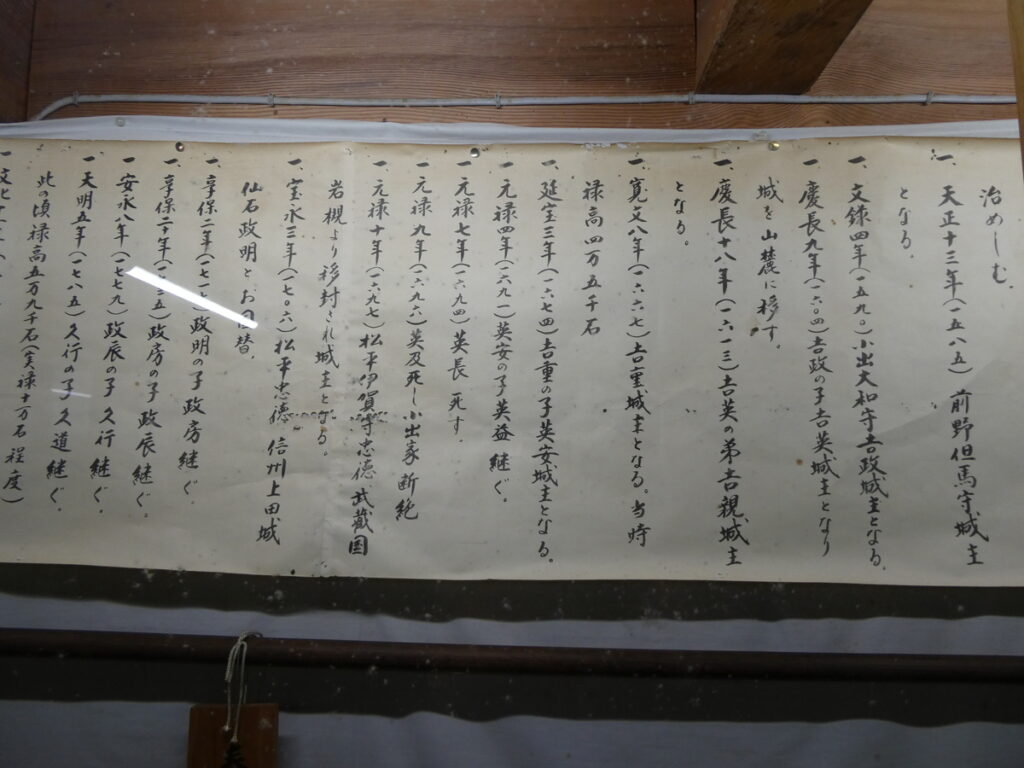 治めしむ、
一、天正十三年(一五八五)前野但馬守城主
となる。
一、文録四年(一五九〇)小出大和守吉政城主となる。
一、慶長九年(一六〇四)吉政の子吉英城主となり
城を山麓に移す。
一、慶長十八年(一六一三)吉英の弟吉親城主
となる。
一、寛文八年(一六六七)吉重城主となる。当時
禄高四万五千石
一、延宝三年(一六七四)吉重の子英安城主となる。
一、元禄四年(一六九一)英安の子英益継ぐ。
一、元禄七年(一六九四)英長死す。
一、元禄九年(一六九六)英及死し小出家断絶
一、元禄十年(一六九七)松平伊賀守忠徳武蔵国
岩槻より移封され城主となる。
一、宝永三年(一七〇六)松平忠徳信州上田城
仙石政明とお国替、
一、享保二年(一七一七)政明の子政房継ぐ。
一、享保二十年(一七三五)政房の子政辰継ぐ。
一、安永八年(一七七九)政辰の子久行継ぐ。
一、天明五年(一七八五)久行の子久道継ぐ。
此の頃禄高五万九千石(実禄十万石程度)